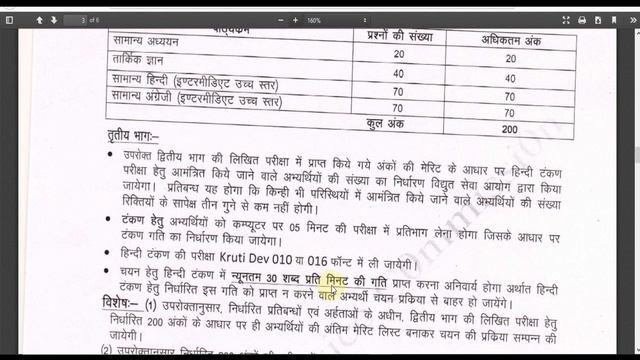 3 of 6
160%
पाठ्यक्रम प्रश्नों की संख्या अधिकतम अंक
सामान्य अध्ययन 20 20
तार्किक ज्ञान 40 40
सामान्य हिन्दी (इण्टरमीडिएट उच्च स्तर) 70 70
सामान्य अंग्रेजी (इण्टरमीडिएट उच्च स्तर) 70 70
कुल अंक 200
तृतीय भाग:-
• उपरोक्त द्वितीय भाग की लिखित परीक्षा में प्राप्त किये गये अंकों की मेरिट के आधार पर हिन्दी टंकण
परीक्षा हेतु आमंत्रित किये जाने वाले अभ्यर्थियों की संख्या का निर्धारण विद्युत सेवा आयोग द्वारा किया
जायेगा। प्रतिबन्ध यह होगा कि किन्ही भी परिस्थियों में आमंत्रित किये जाने वाले अभ्यर्थियों की संख्या
रिक्तियों के सापेक्ष तीन गुने से कम नहीं होगी।
• टंकण हेतु अभ्यर्थियों को कम्प्यूटर पर 05 मिनट की परीक्षा में प्रतिभाग लेना होगा जिसके आधार पर
टंकण गति का निर्धारण किया जायेगा।
• हिन्दी टंकण की परीक्षा Kruti Dev 010 या 016 फॉन्ट में ली जायेगी।
• चयन हेतु हिन्दी टंकण में न्यूनतम 30 शब्द प्रति मिनट की गति प्राप्त करना अनिवार्य होगा अर्थात हिन्दी
टंकण हेतु निर्धारित इस गति को प्राप्त न करने वाले अभ्यर्थी चयन प्रकिया से बाहर हो जायेंगे।
विशेष:- (1) उपरोक्तानुसार, निर्धारित प्रतिबन्धों एवं अर्हताओं के अधीन, द्वितीय भाग की लिखित परीक्षा हेतु
निर्धारित 200 अंकों के आधार पर ही अभ्यर्थियों की अंतिम मेरिट लिस्ट बनाकर चयन की प्रकिया सम्पन्न की
जायेगी।
(2) उपरोक्तानुसार निर्धारित 200 अंकों